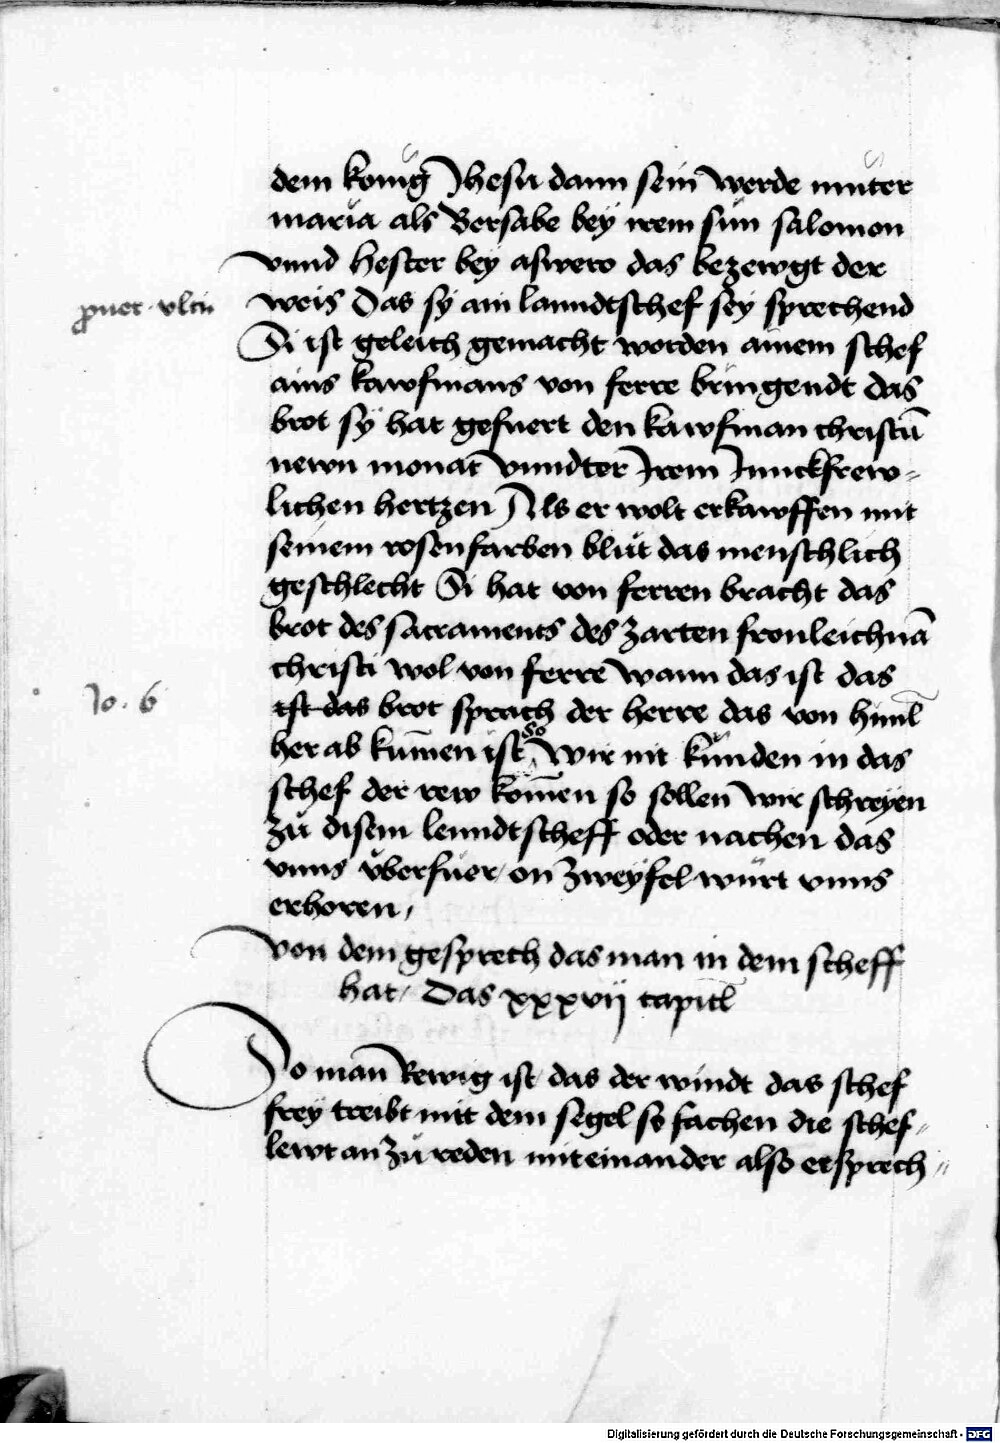 dem konig Jhesu dann sein werde muͤter
maria als Bersabe bey irem sun salomon
vnnd hester bey aswero das bezewgt der
ꝓuer. vltiͥ
weis Das sy ain lanndtschef sey sprechend
Si ist geleich gemacht worden ainem schef
ains kawfmans von ferre bringendt das
brot sy hat gefuert den kawfman christū
newn monat vnndter Jrem Junckfrew-
lichen hertzen Als er wolt erkawffen mit
seinem rosenfarben blůt das menschlich
geschlecht Si hat von ferren bracht das
brot des sacraments des zarten fronleichnā
christi wol von ferre wann das ist das
Jo. 6
ist das brot sprach der herre das von himl
her ab kumen ist so wir nit kunden in das
schef der rew komen so sollen wir schreyen
zů disem lenndtscheff oder nachen das
vnns vberfuer on zweyfel wurt vnns
erhoren /
von dem gesprech das man in dem scheff
hat / Das xxxvij capitl
So man Rewig ist das der windt das schef
frey treibt mit dem segel so fachen die schef-
lewt an zů reden miteinander also ersprech-
Digitalisierung gefördert durch die Deutsche Forschungsgemeinschaft - DFG